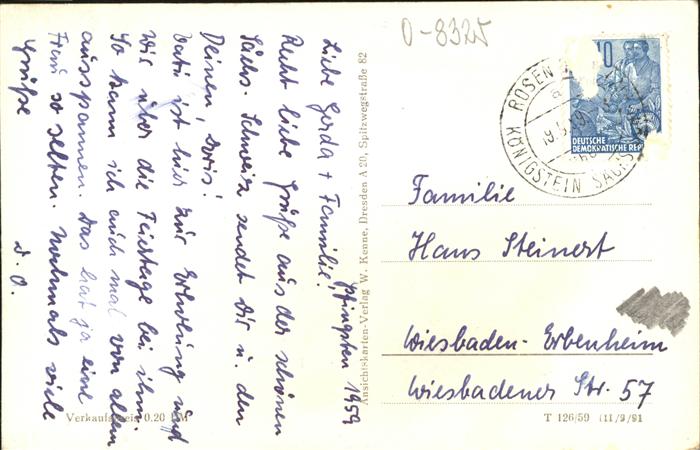 0-8325
Pfingsten 1959
Liebe Gerda + Familie!
Recht liebe Grüße aus der schönen
Sächs. Schweiz sendet Dir u. den
Deinen, Doris!
Vati ist hier zur Erholung und
wir über die Feiertage bei ihm
So kann ich auch mal von allem
ausspannen. Das hat ja eine
Frau so selten. Nochmals viele
Grüße
D. O.
Ansichtskarten-Verlag W. Kenne, Dresden A 20, Spitzwegstraße 82
10
DEUTSCHE
DEMOKRATISCHE REP
ROSEN
KÖNIGSTEIN SÄCHS
Familie
Hans Steinert
Wiesbaden-Erbenheim
Wiesbadener Str. 57
Verkaufspreis 0,20 DM
T 126/59 (11/9/91